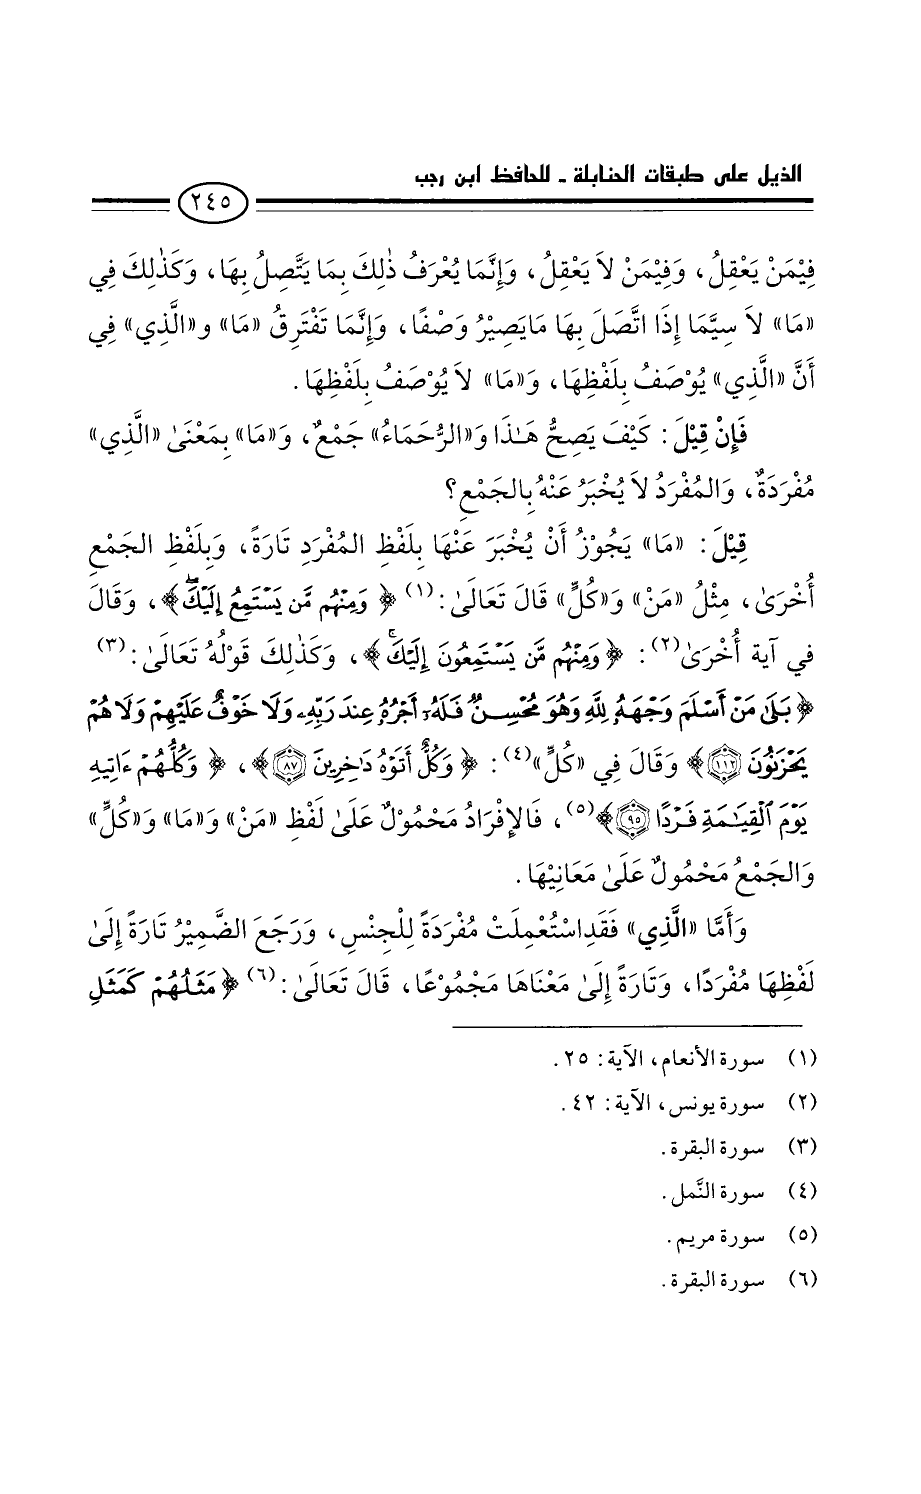 الذيل على طبقات الحنابلة ـ للحافظ ابن رجب
٢٤٥
فِيْمَنْ يَعْقِلُ، وَفِيْمَنْ لاَ يَعْقِلُ، وَإِنَّمَا يُعْرَفُ ذٰلِكَ بِمَا يَتَّصِلُ بِهَا، وَكَذٰلِكَ فِي
«مَا» لاَ سِيَّمَا إِذَا اتَّصَلَ بِهَا مَايَصِيْرُ وَصْفًا، وَإِنَّمَا تَفْتَرِقُ «مَا» و«الَّذِي» فِي
أَنَّ «الَّذِي» يُوْصَفُ بِلَفْظِهَا، وَ«مَا» لاَ يُوْصَفُ بِلَفْظِهَا.
فَإِنْ قِيْلَ: كَيْفَ يَصِحُّ هَـٰذَا وَ«الرُّحَمَاءُ» جَمْعٌ، وَ«مَا» بِمَعْنَىٰ «الَّذِي»
مُفْرَدَةٌ، وَالمُفْرَدُ لاَ يُخْبَرُ عَنْهُ بِالجَمْعِ؟
قِيْلَ: «مَا» يَجُوْزُ أَنْ يُخْبَرَ عَنْهَا بِلَفْظِ المُفْرَدِ تَارَةً، وَبِلَفْظِ الجَمْعِ
أُخْرَىٰ، مِثْلُ «مَنْ» وَ«كُلٍّ» قَالَ تَعَالَىٰ:(١) ﴿ وَمِنْهُم مَّن يَسْتَمِعُ إِلَيْكَۖ ﴾، وَقَالَ
في آية أُخْرَىٰ(٢): ﴿ وَمِنْهُم مَّن يَسْتَمِعُونَ إِلَيْكَۚ ﴾، وَكَذٰلِكَ قَوْلُهُ تَعَالَىٰ:(٣)
﴿ بَلَىٰ مَنْ أَسْلَمَ وَجْهَهُۥ لِلَّهِ وَهُوَ مُحْسِنٌ فَلَهُۥٓ أَجْرُهُۥ عِندَ رَبِّهِۦ وَلَا خَوْفٌ عَلَيْهِمْ وَلَا هُمْ
يَحْزَنُونَ ١١٢ ﴾ وَقَالَ فِي «كُلٍّ»(٤): ﴿ وَكُلٌّ أَتَوْهُ دَٰخِرِينَ ٨٧ ﴾، ﴿ وَكُلُّهُمْ ءَاتِيهِ
يَوْمَ ٱلْقِيَٰمَةِ فَرْدًا ٩٥ ﴾(٥)، فَالإِفْرَادُ مَحْمُوْلٌ عَلَىٰ لَفْظِ «مَنْ» وَ«مَا» وَ«كُلٍّ»
وَالجَمْعُ مَحْمُولٌ عَلَىٰ مَعَانِيْهَا.
وَأَمَّا «الَّذِي» فَقَدِ اسْتُعْمِلَتْ مُفْرَدَةً لِلْجِنْسِ، وَرَجَعَ الضَّمِيْرُ تَارَةً إِلَىٰ
لَفْظِهَا مُفْرَدًا، وَتَارَةً إِلَىٰ مَعْنَاهَا مَجْمُوْعًا، قَالَ تَعَالَىٰ:(٦) ﴿ مَثَلُهُمْ كَمَثَلِ
(١) سورة الأنعام، الآية: ٢٥.
(٢) سورة يونس، الآية: ٤٢.
(٣) سورة البقرة.
(٤) سورة النَّمل.
(٥) سورة مريم.
(٦) سورة البقرة.